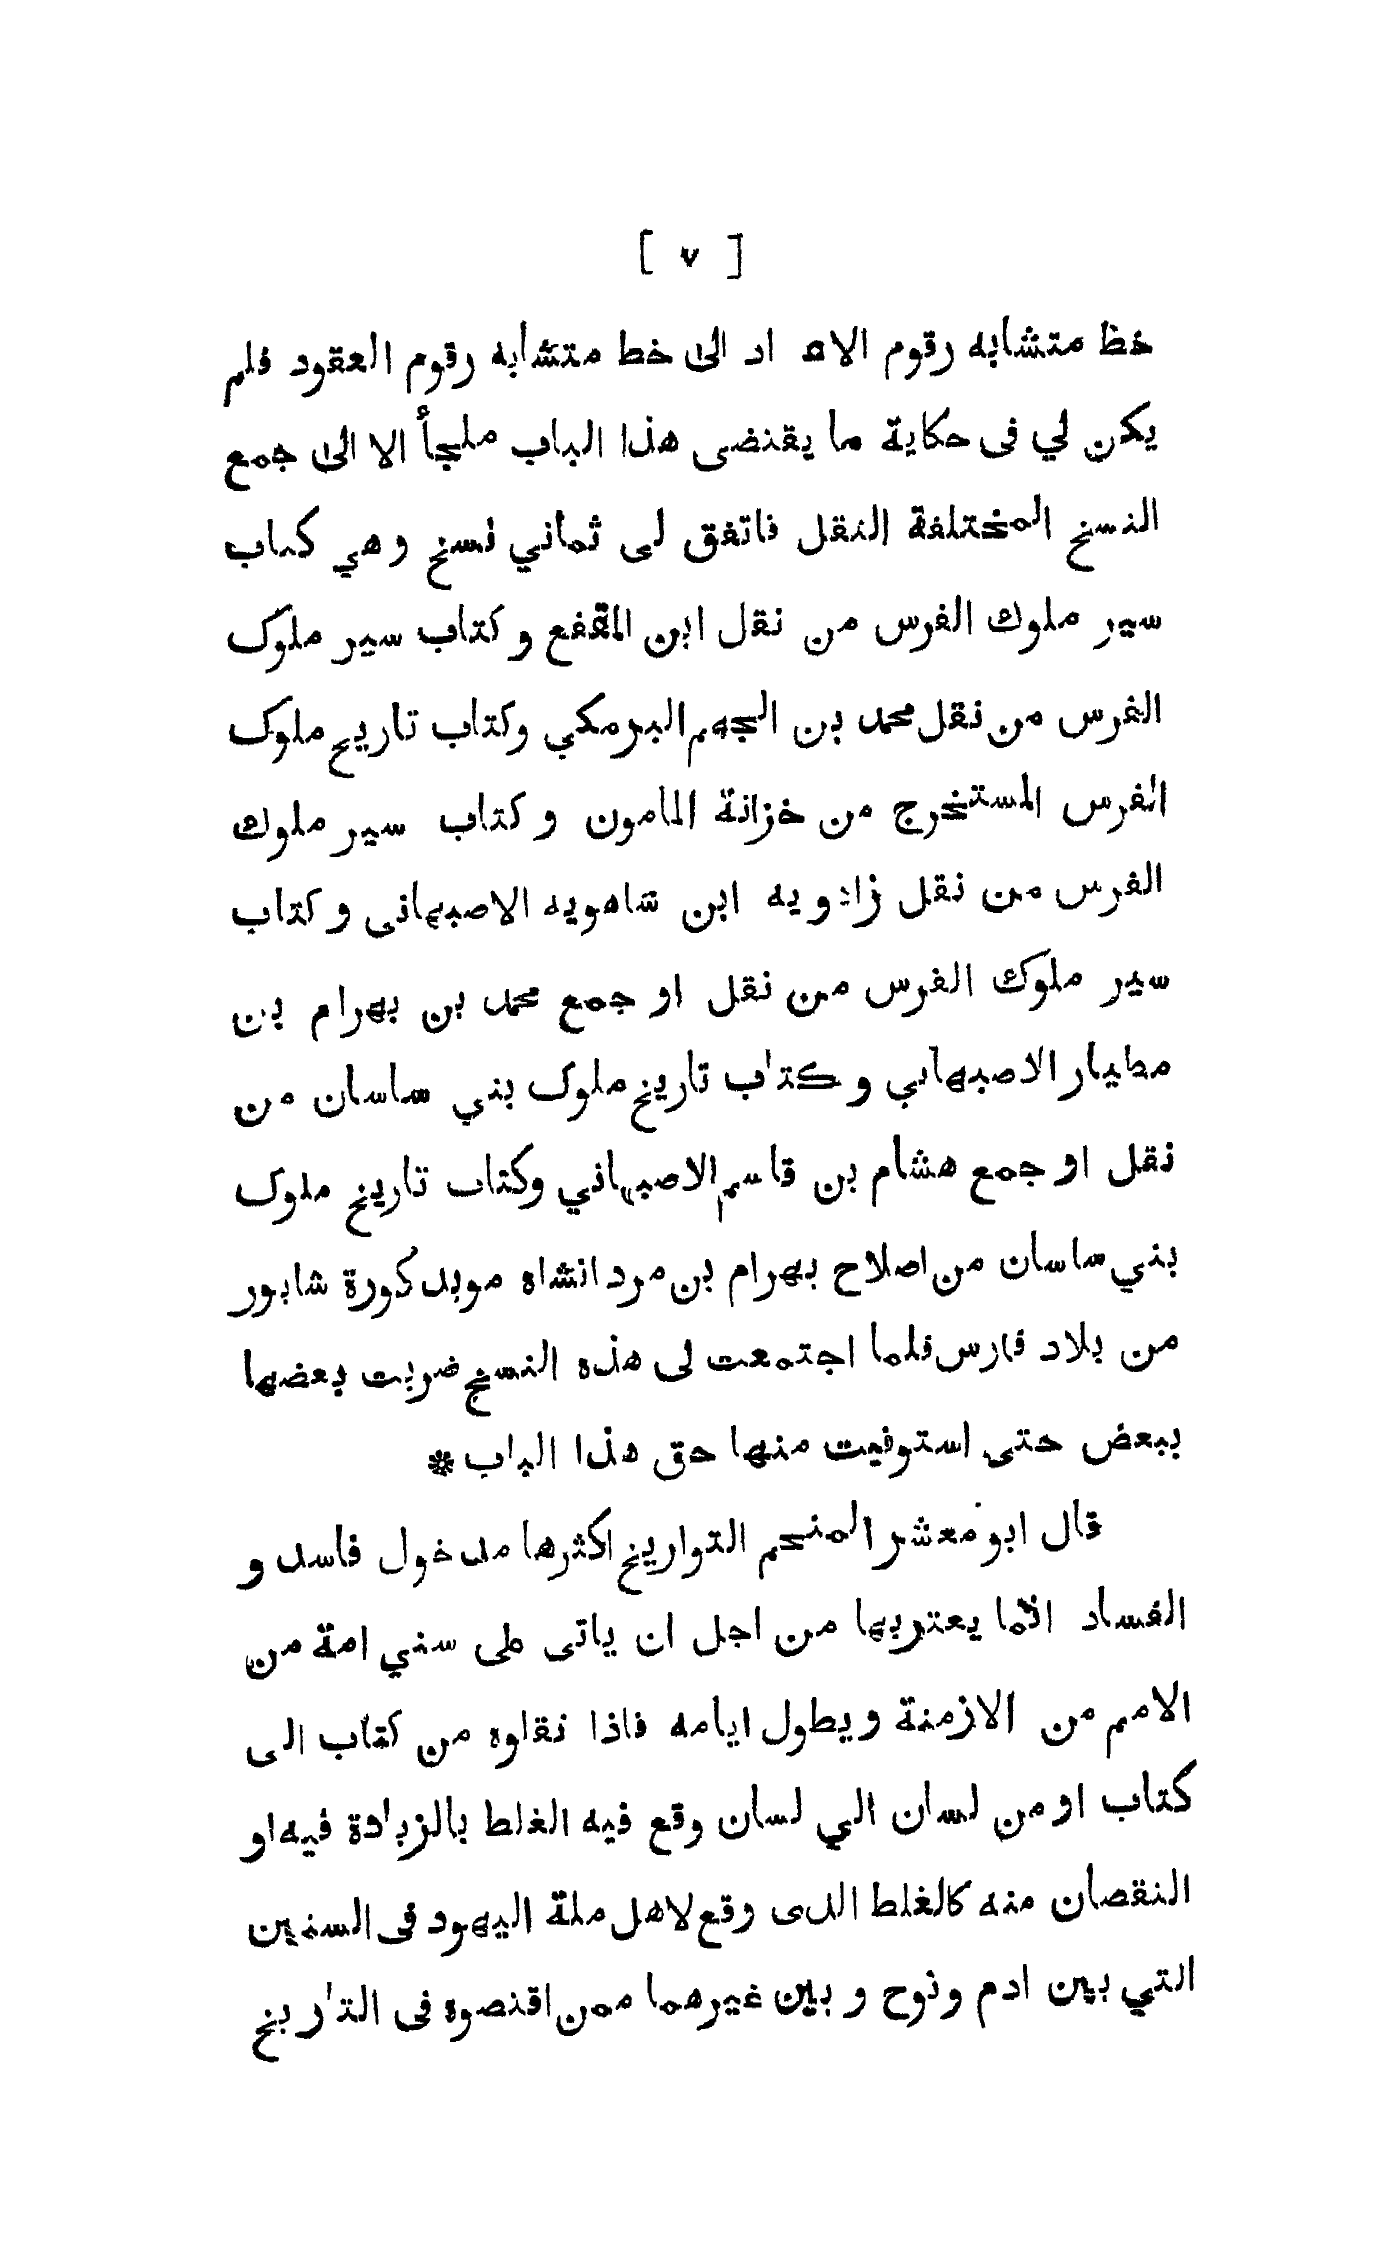 [ ٧ ]
خط متشابه رقوم الاعداد الى خط متشابه رقوم العقود فلم
يكن لي فى حكاية ما يقتضى هذا الباب ملجأ الا الى جمع
النسخ المختلفة النقل فاتفق لى ثماني نسخ وهي كتاب
سير ملوك الفرس من نقل ابن المقفع و كتاب سير ملوك
الفرس من نقل محمد بن الجهم البرمكي وكتاب تاريخ ملوك
الفرس المستخرج من خزانة المامون و كتاب سير ملوك
الفرس من نقل زادويه ابن شاهويه الاصبهانى و كتاب
سير ملوك الفرس من نقل او جمع محمد بن بهرام بن
مطيار الاصبهاني و كتاب تاريخ ملوك بني ساسان من
نقل او جمع هشام بن قاسم الاصبهاني وكتاب تاريخ ملوك
بني ساسان من اصلاح بهرام بن مردانشاه موبد كورة شابور
من بلاد فارس فلما اجتمعت لى هذه النسخ ضربت بعضها
ببعض حتى استوفيت منها حق هذا الباب *
قال ابو معشر المنجم التواريخ اكثرها مدخول فاسد و
الفساد انما يعتريها من اجل ان ياتى على سني امة من
الامم من الازمنة ويطول ايامه فاذا نقلوه من كتاب الى
كتاب او من لسان الي لسان وقع فيه الغلط بالزيادة فيه او
النقصان منه كالغلط الذى وقع لاهل ملة اليهود فى السنين
التي بين ادم ونوح و بين غيرهما ممن اقتصوه فى التاريخ